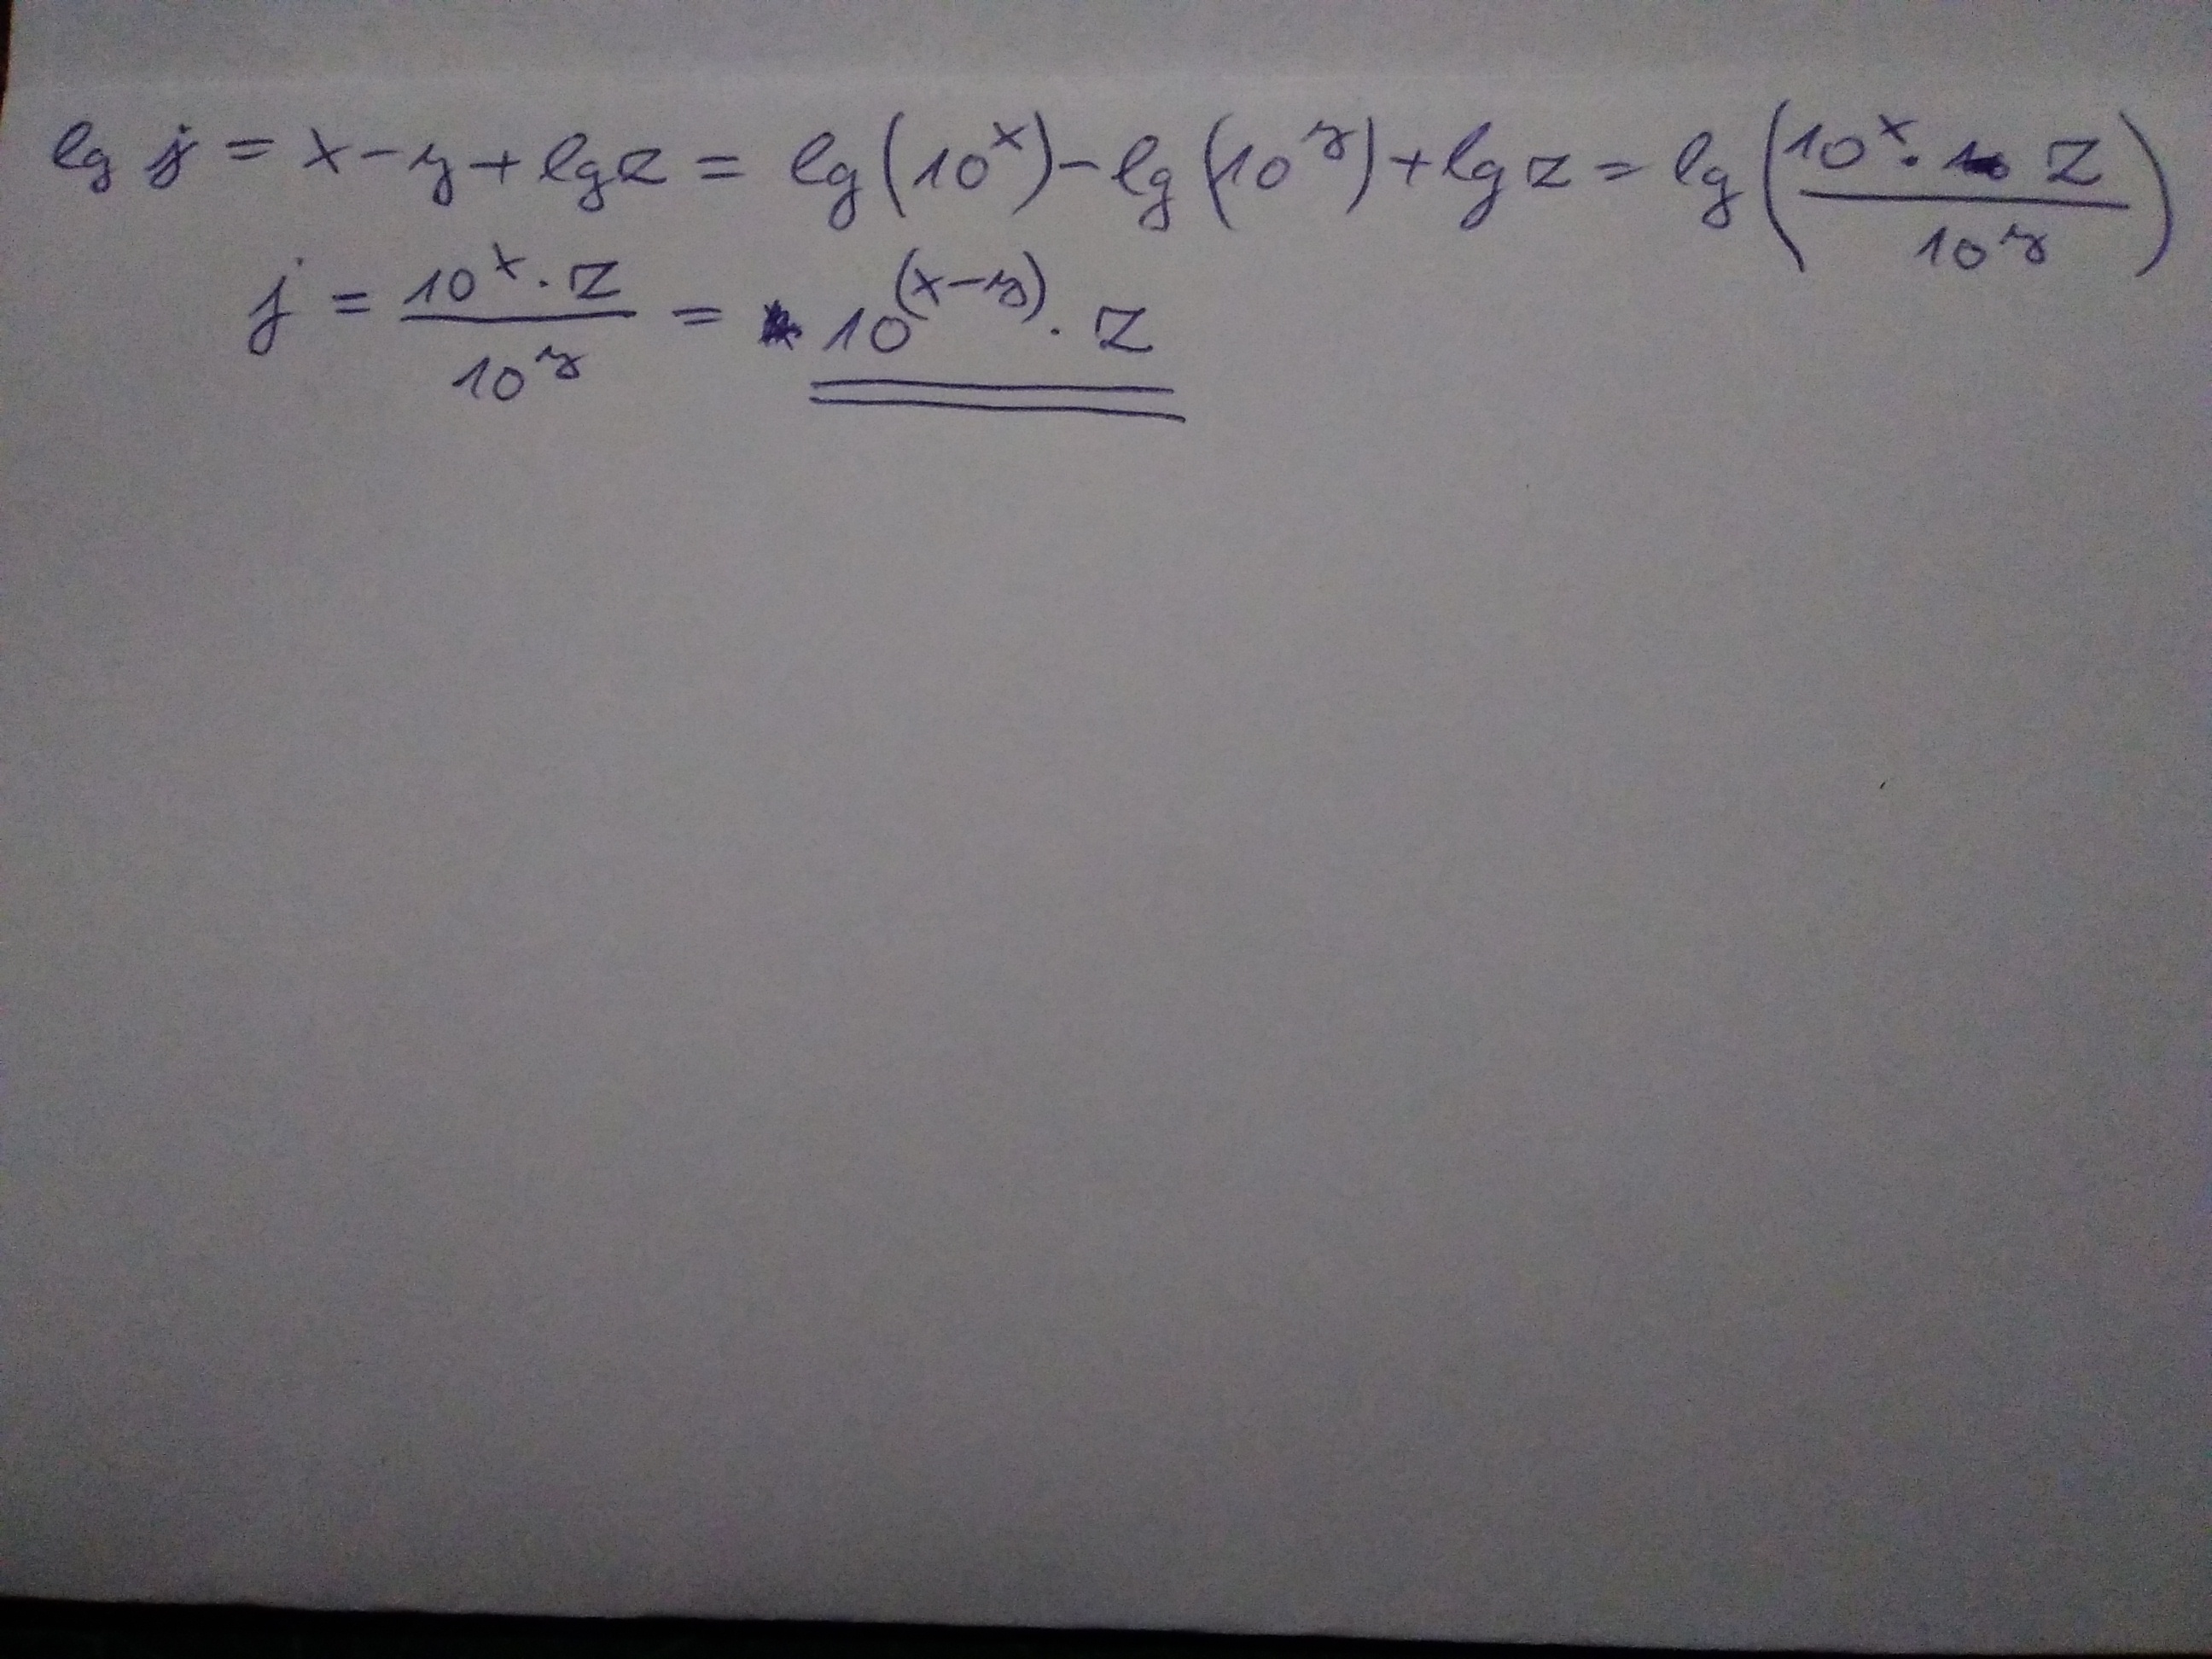 lg j = x - y + lg z = lg (10^x) - lg (10^y) + lg z = lg (10^x · z / 10^y)
j = 10^x · z / 10^y = 10^(x-y) · z